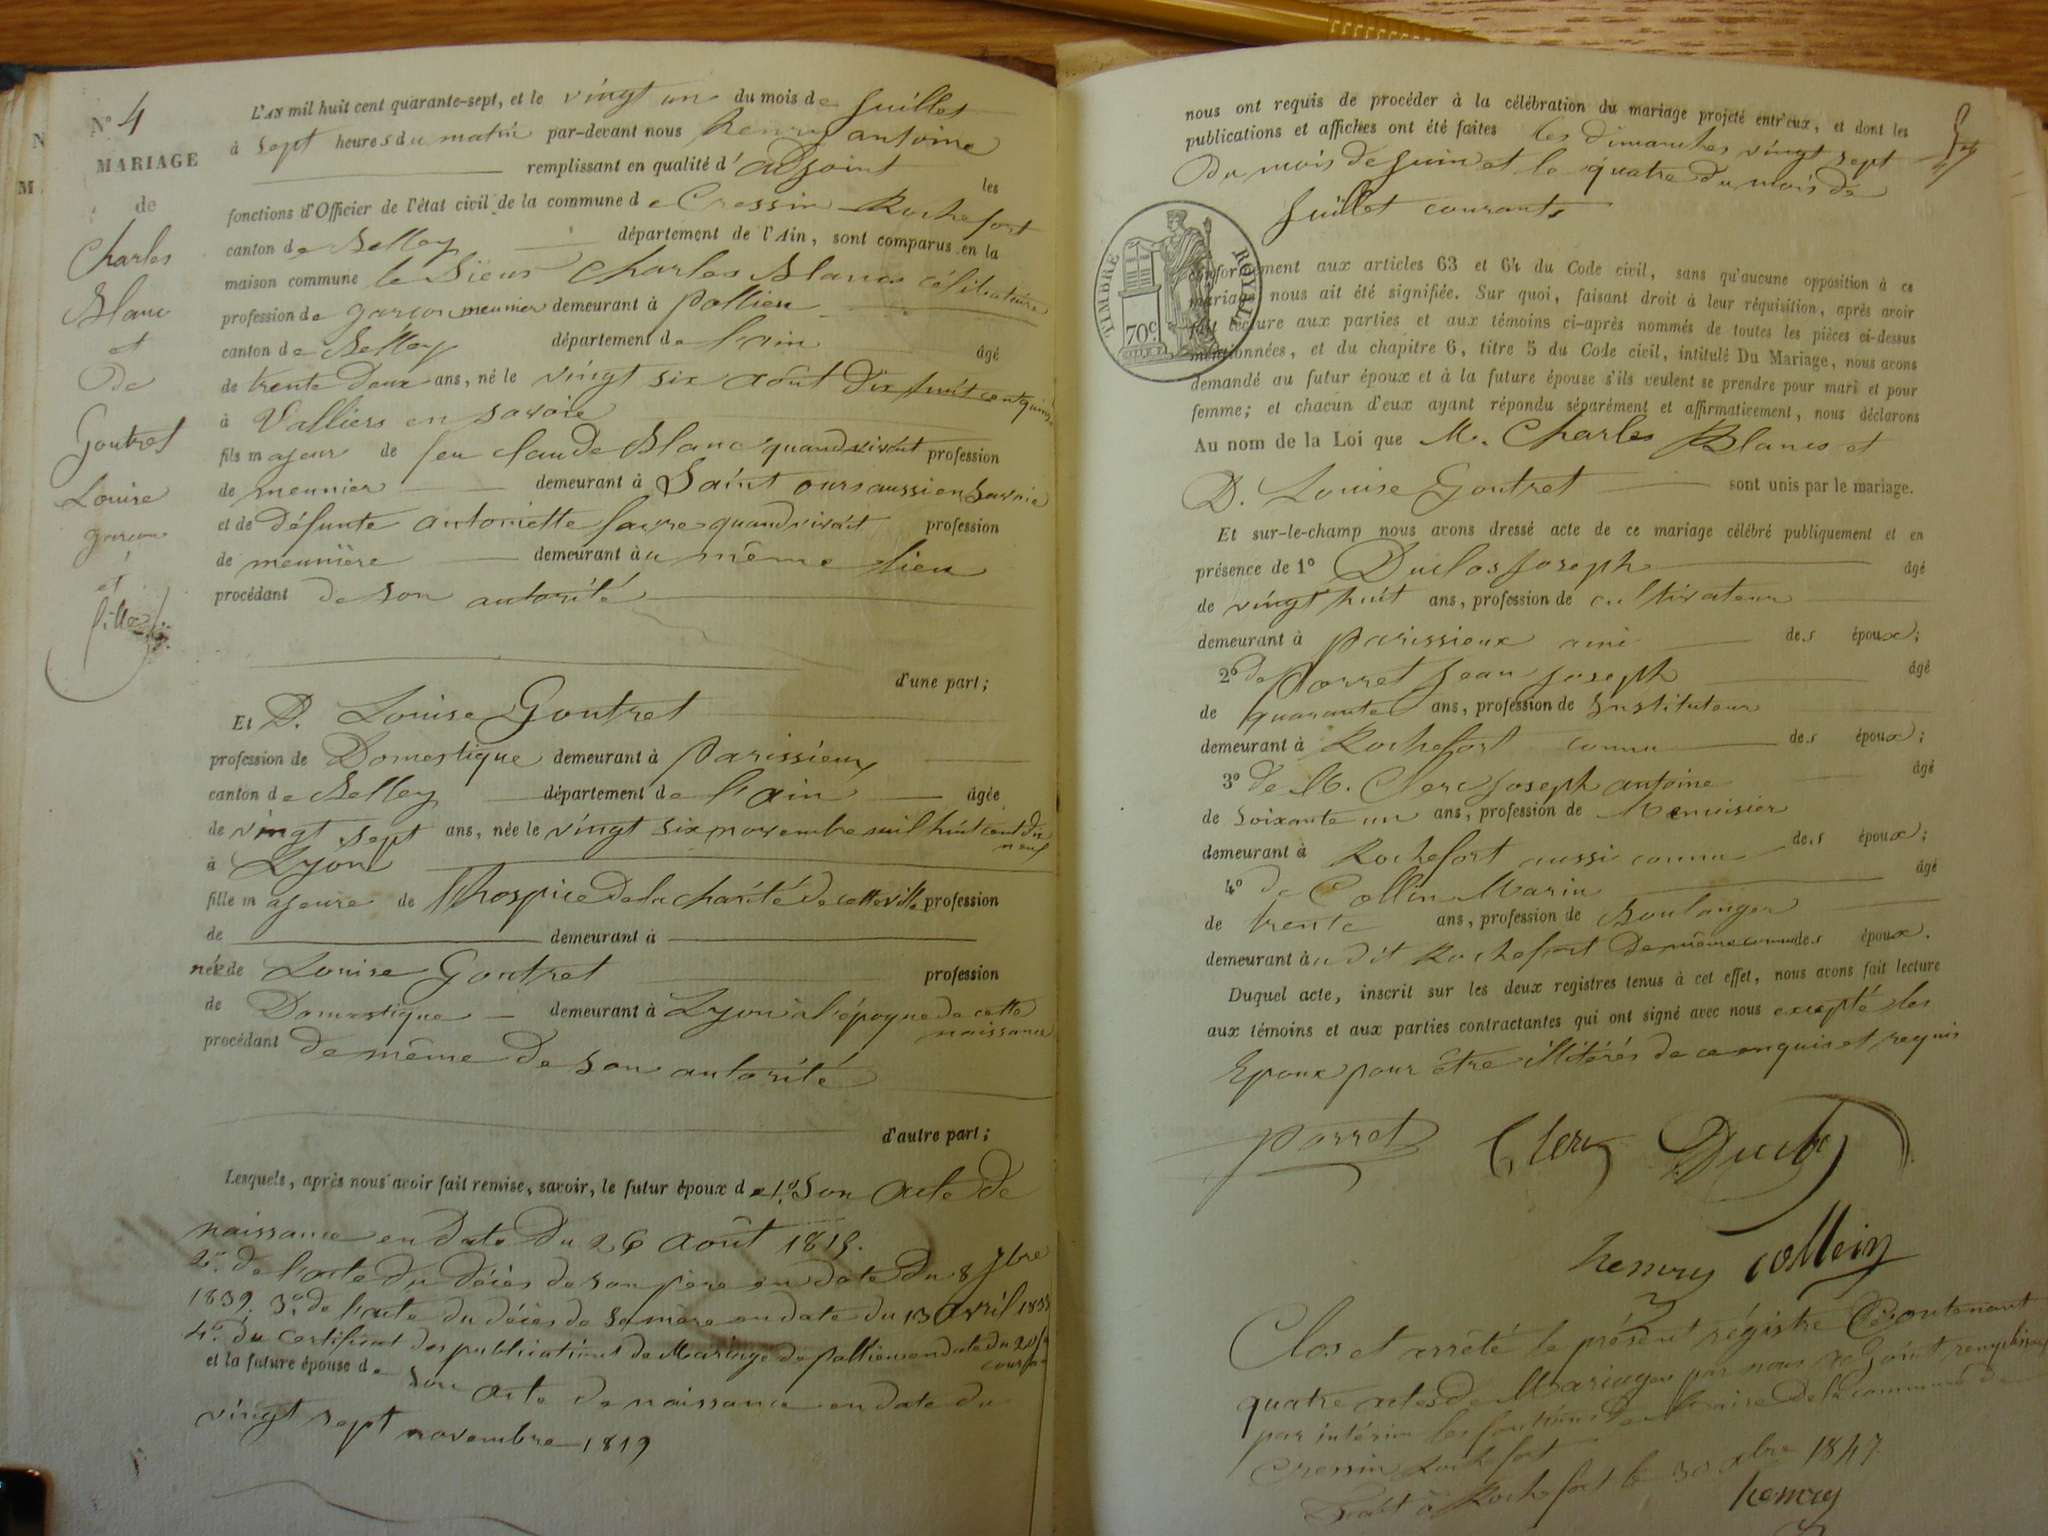 N° 4
MARIAGE
de
Charles
Blanc
et
De
Goutret
Louise
garçon
et
fille
L'AN mil huit cent quarante-sept, et le vingt un du mois de Juillet
à Sept heures du matin par-devant nous henry antoine
remplissant en qualité d'adjoint les
fonctions d'Officier de l'état civil de la commune de Cressin Rochefort
canton de Belley département de l'Ain, sont comparus en la
maison commune le Sieur Charles Blanc célibataire
profession de garçon meunier demeurant à Pollieu
canton de Belley département de l'ain âgé
de trente Deux ans, né le vingt six août Dix huit cent quinze
à Valliers en savoie
fils majeur de feu claude Blanc quand vivait profession
de meunier demeurant à Saint ours aussi en Savoie
et de défunte antoinette favre quand vivait profession
de meunière demeurant au même lieu
procédant de son autorité
d'une part;
Et D. Louise Goutret
profession de Domestique demeurant à Parissieux
canton de Belley département de l'ain âgée
de vingt sept ans, née le vingt six novembre mil huit cent dix neuf
à Lyon
fille majeure de l'hospice De la charité de cette ville profession
de demeurant à
née de Louise Goutret profession
de Domestique demeurant à Lyon à l'époque de cette naissance
procédant de même de son autorité
d'autre part;
Lesquels, après nous avoir fait remise, savoir, le futur époux de 1° Son acte de
naissance en date du 26 août 1815.
2° de l'acte du décès de son père en date du 8 7bre
1839. 3° de l'acte du décès de sa mère en date du 13 avril
4° du certificat des publications de Mariage de pollieu en date du
et la future épouse de son acte de naissance en date du
vingt sept novembre 1819
nous ont requis de procéder à la célébration du mariage projeté entr'eux, et dont les
publications et affiches ont été faites les dimanches vingt sept
du mois de Juin et le quatre du mois de
Juillet courant
conformément aux articles 63 et 64 du Code civil, sans qu'aucune opposition à ce
mariage nous ait été signifiée. Sur quoi, faisant droit à leur réquisition, après avoir
fait lecture aux parties et aux témoins ci-après nommés de toutes les pièces ci-dessus
mentionnées, et du chapitre 6, titre 5 du Code civil, intitulé Du Mariage, nous avons
demandé au futur époux et à la future épouse s'ils veulent se prendre pour mari et pour
femme; et chacun d'eux ayant répondu séparément et affirmativement, nous déclarons
TIMBRE ROYAL
70 c.
Au nom de la Loi que M. Charles Blanc et
D. Louise Goutret sont unis par le mariage.
Et sur-le-champ nous avons dressé acte de ce mariage célébré publiquement et en
présence de 1° Duclos Joseph âgé
de vingt huit ans, profession de cultivateur
demeurant à Parissieux ami des époux;
2° de Porret Jean Joseph âgé
de quarante ans, profession de Instituteur
demeurant à Rochefort connu des époux;
3° de M. Clerc Joseph antoine âgé
de Soixante un ans, profession de Menuisier
demeurant à Rochefort aussi connu des époux;
4° de Collin Marin âgé
de trente ans, profession de Boulanger
demeurant au dit Rochefort De même connu des époux.
Duquel acte, inscrit sur les deux registres tenus à cet effet, nous avons fait lecture
aux témoins et aux parties contractantes qui ont signé avec nous excepté les
Epoux pour être illitérés de ce enquis et requis
Porret Clerc Duclos
henry collein
Clos et arrêté le présent régistre Contenant
quatre actes de Mariages par nous adjoint remplissant
par intérim les fonctions de Maire de la commune de
Cressin Rochefort
Fait à Rochefort le 30 Xbre 1847.
henry